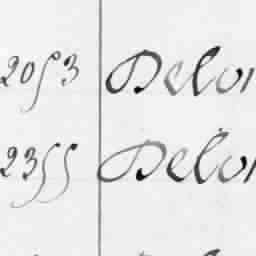 2053 Delor
2355 Delor